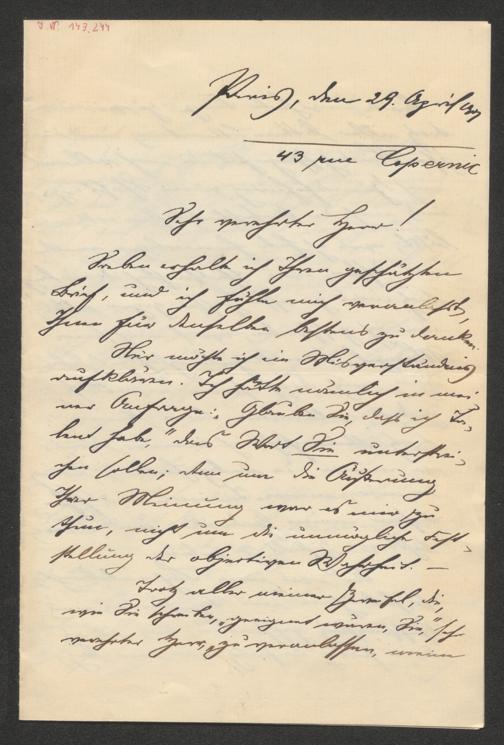 J. N. 143.244
Paris, den 29. April 
43 rue Copernic
Sehr verehrter Herr!
Soeben erhalte ich Ihren geschätzten
Brief, und ich fühle mich veranlaßt,
Ihnen für denselben bestens zu danken.
Nur möchte ich ein Misverständnis
aufklären. Ich hätte nämlich in mei-
ner Anfrage: „Glauben Sie, daß ich Ta-
lent habe," das Wort Sie unterstrei-
chen sollen; denn um die Äußerung
Ihrer Meinung war es mir zu
thun, nicht um die unmögliche Fest-
stellung der objectiven Wahrheit. —
Trotz aller meiner Zweifel, die,
wie Sie schreiben, „geeignet wären, Sie," sehr
verehrter Herr, „zu veranlassen, meine